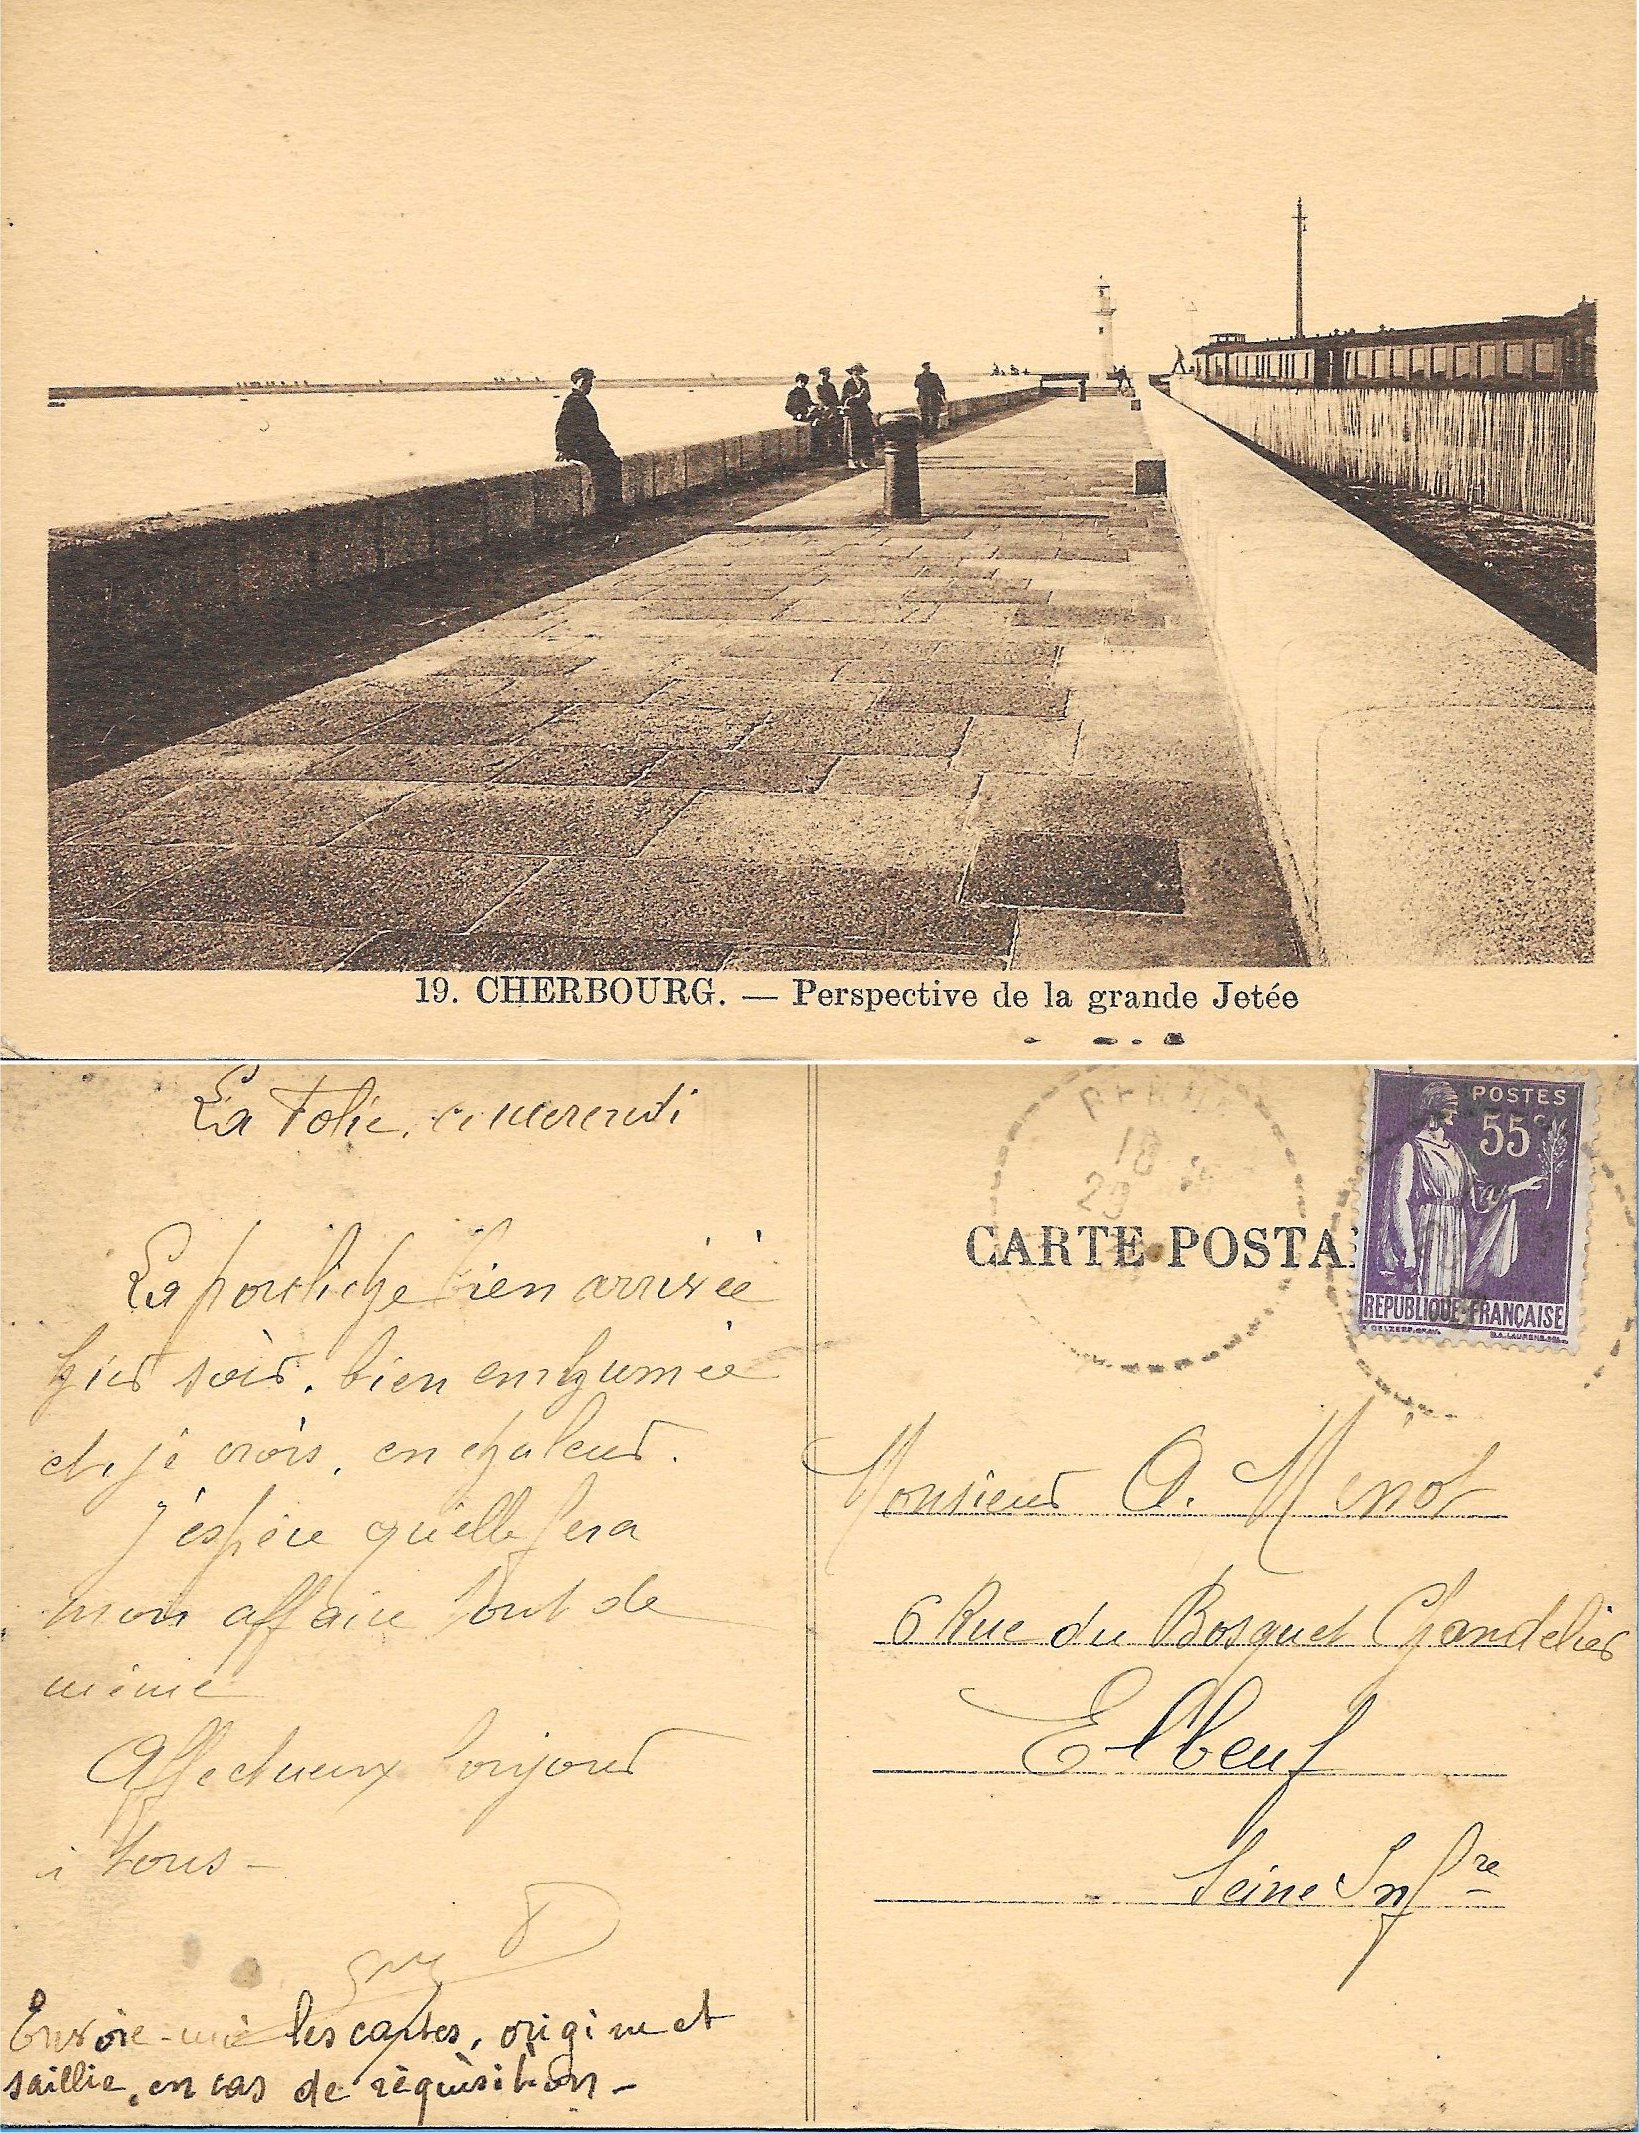 19. CHERBOURG. — Perspective de la grande Jetée
La Folie, ce mercredi
La pouliche bien arrivée
hier soir, bien enrhumée
et, je crois, en chaleur.
J'espère qu'elle fera
mon affaire tout de
même
Affectueux bonjour
à tous —
Envoie-moi les cartes, origine et
saillie, en cas de réquisition —
CARTE POSTA
POSTES
55c
REPUBLIQUE FRANÇAISE
18
29
Monsieur A. Menot
6 Rue du Bosquet Chandelier
Elbeuf
Seine Infre